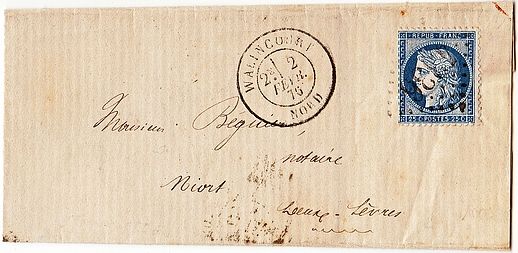 REPUB · FRANC ·
25 C · POSTES · 25 C
WALINCOURT
2E
2
FEVR.
76
NORD
Monsieur Beguier
notaire
Niort
Deux-Sèvres